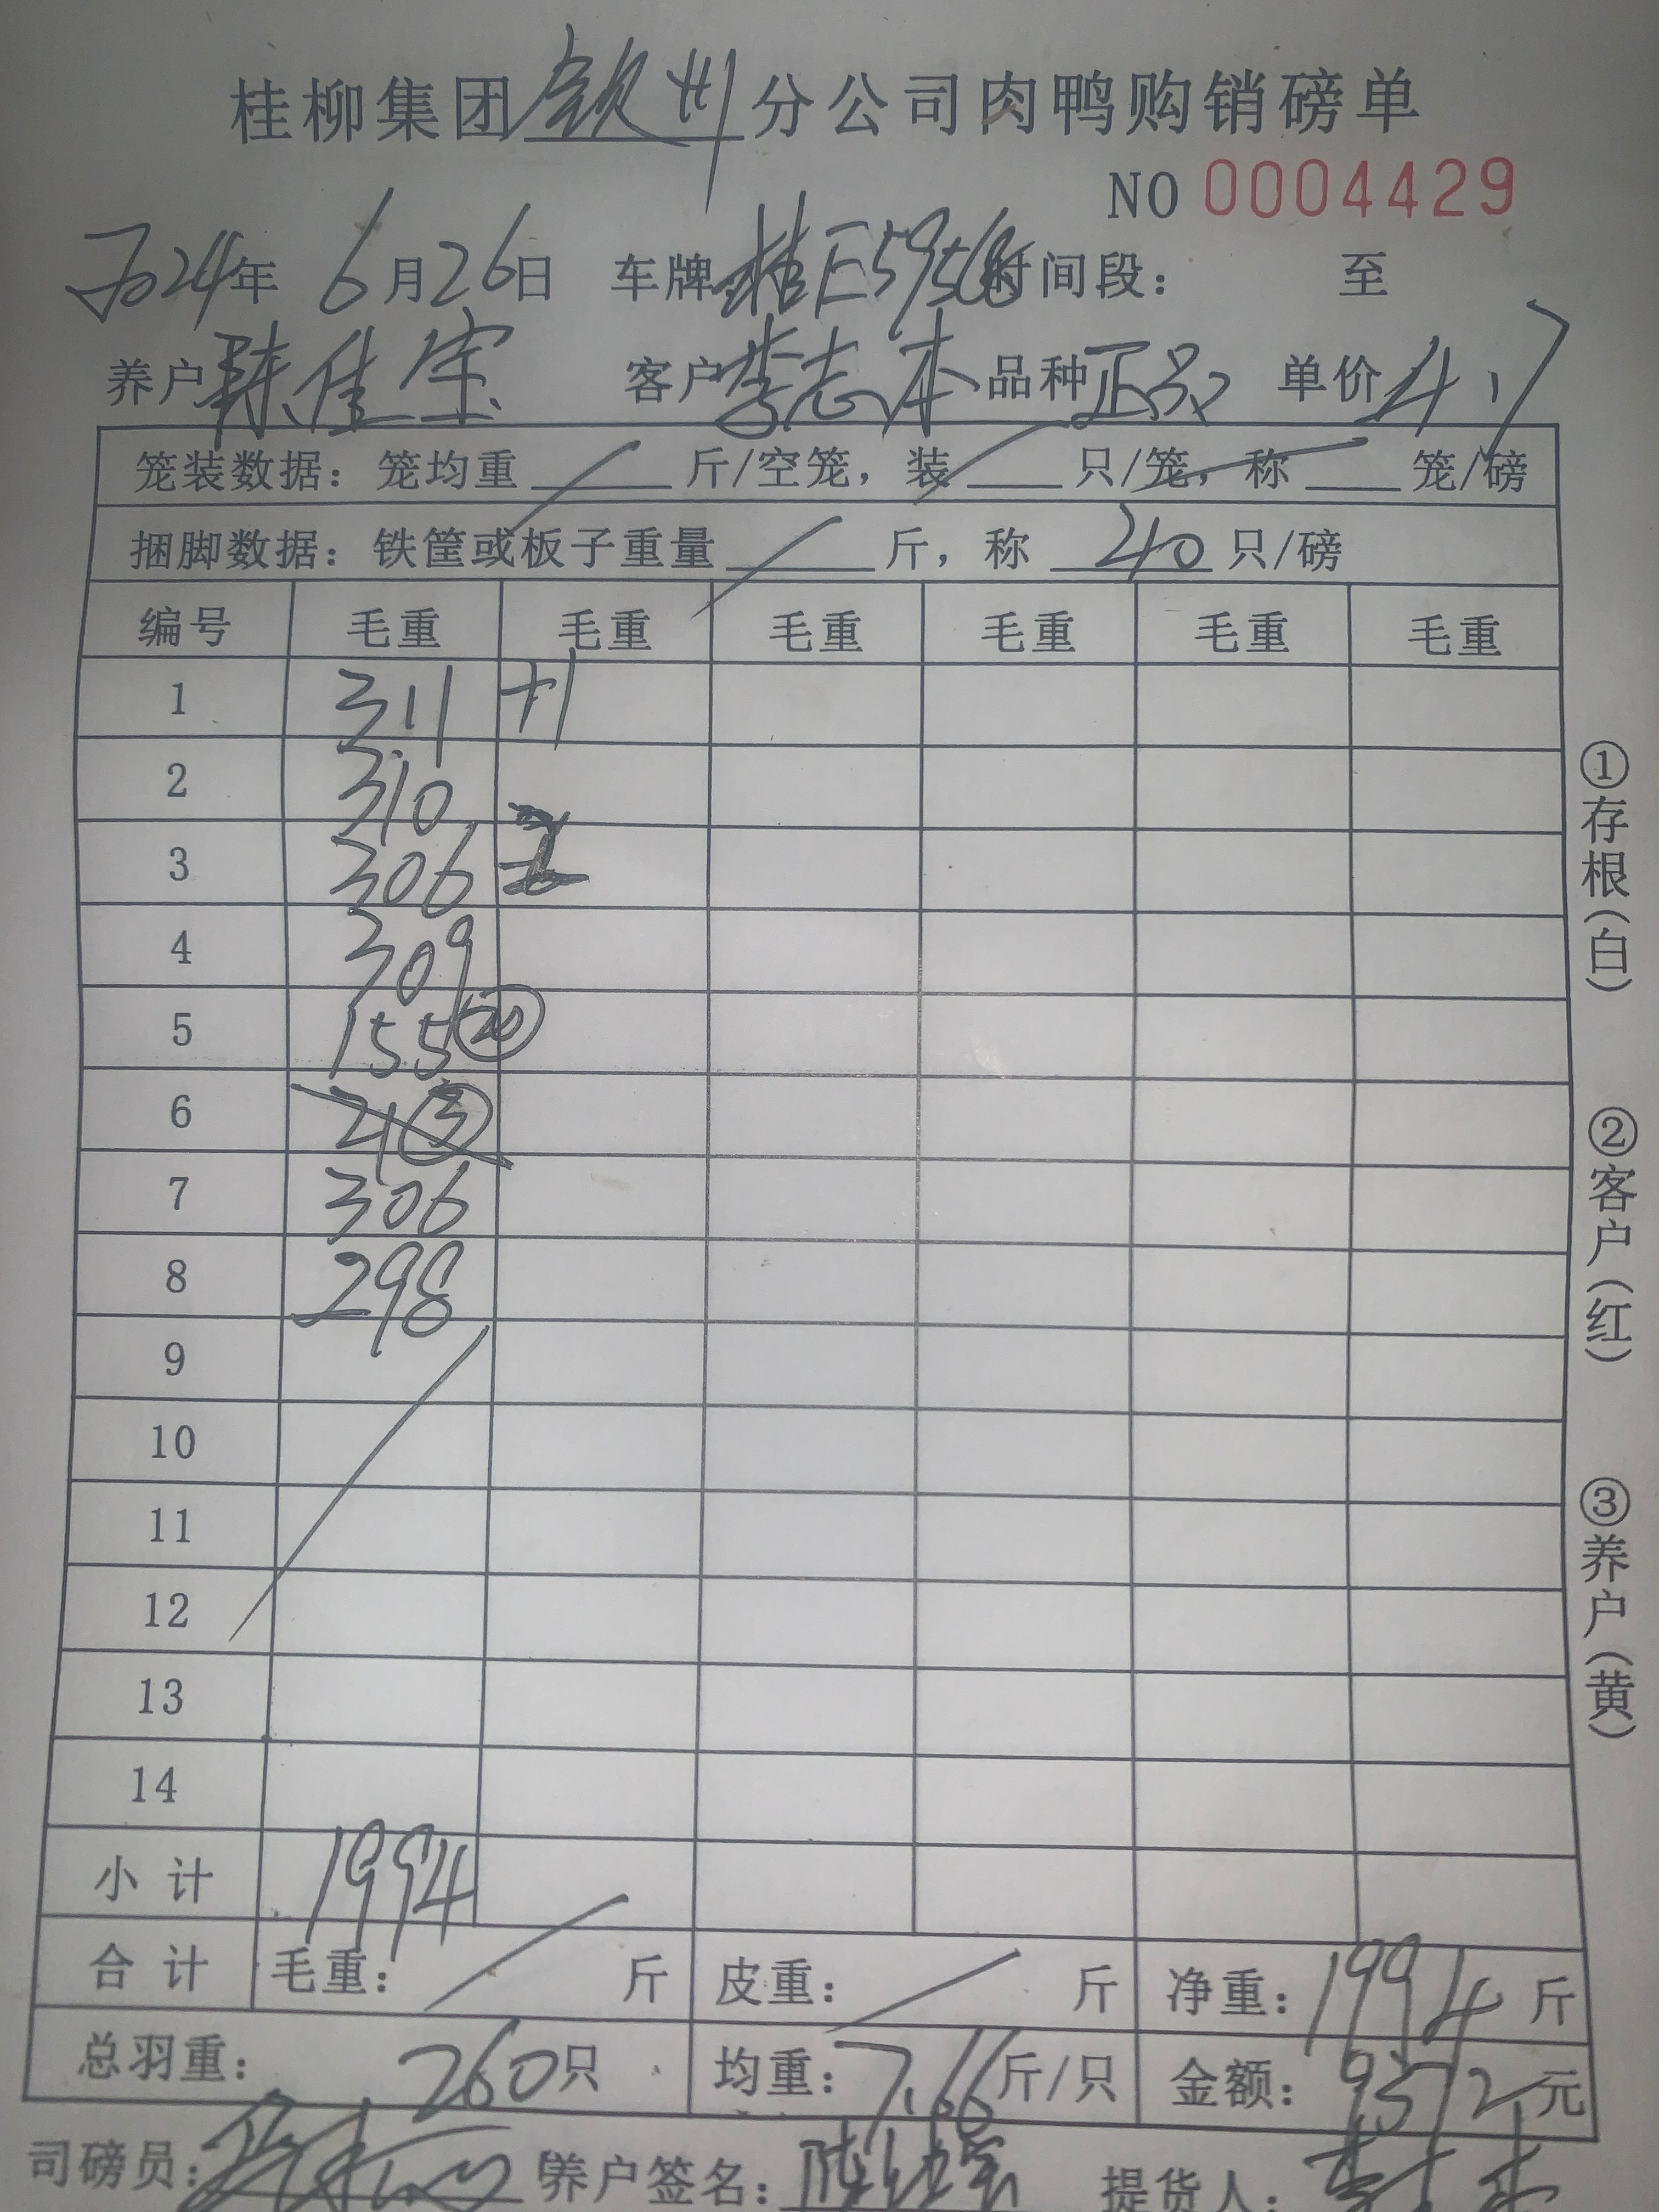 桂柳集团钦州分公司肉鸭购销磅单
NO 0004429
2024年 6月26日 车牌桂E59568时间段： 至
养户陈佳宝 客户李志本 品种正品 单价4.7
笼装数据：笼均重 斤/空笼，装 只/笼，称 笼/磅
捆脚数据：铁筐或板子重量 斤，称 40 只/磅
编号 毛重 毛重 毛重 毛重 毛重 毛重
1 311 +1
2 310
3 306
4 309
5 155 ⑳
6 21 ③
7 306
8 298
9
10
11
12
13
14
小计 1994
合计 毛重： 斤 皮重： 斤 净重：1994斤
总羽重：260只 均重：7.66斤/只 金额：9372元
司磅员： 养户签名：陈佳宝 提货人：
①存根（白）
②客户（红）
③养户（黄）